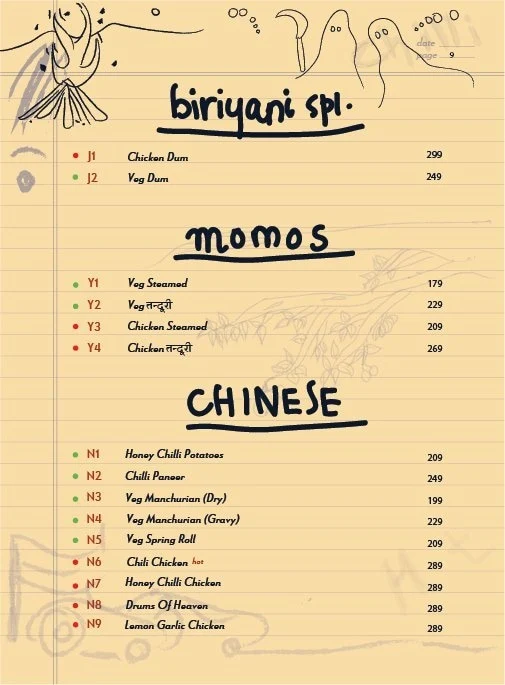 date
page 9
biriyani spl.
J1 Chicken Dum 299
J2 Veg Dum 249
momos
Y1 Veg Steamed 179
Y2 Veg तन्दूरी 229
Y3 Chicken Steamed 209
Y4 Chicken तन्दूरी 269
CHINESE
N1 Honey Chilli Potatoes 209
N2 Chilli Paneer 249
N3 Veg Manchurian (Dry) 199
N4 Veg Manchurian (Gravy) 229
N5 Veg Spring Roll 209
N6 Chili Chicken hot 289
N7 Honey Chilli Chicken 289
N8 Drums Of Heaven 289
N9 Lemon Garlic Chicken 289